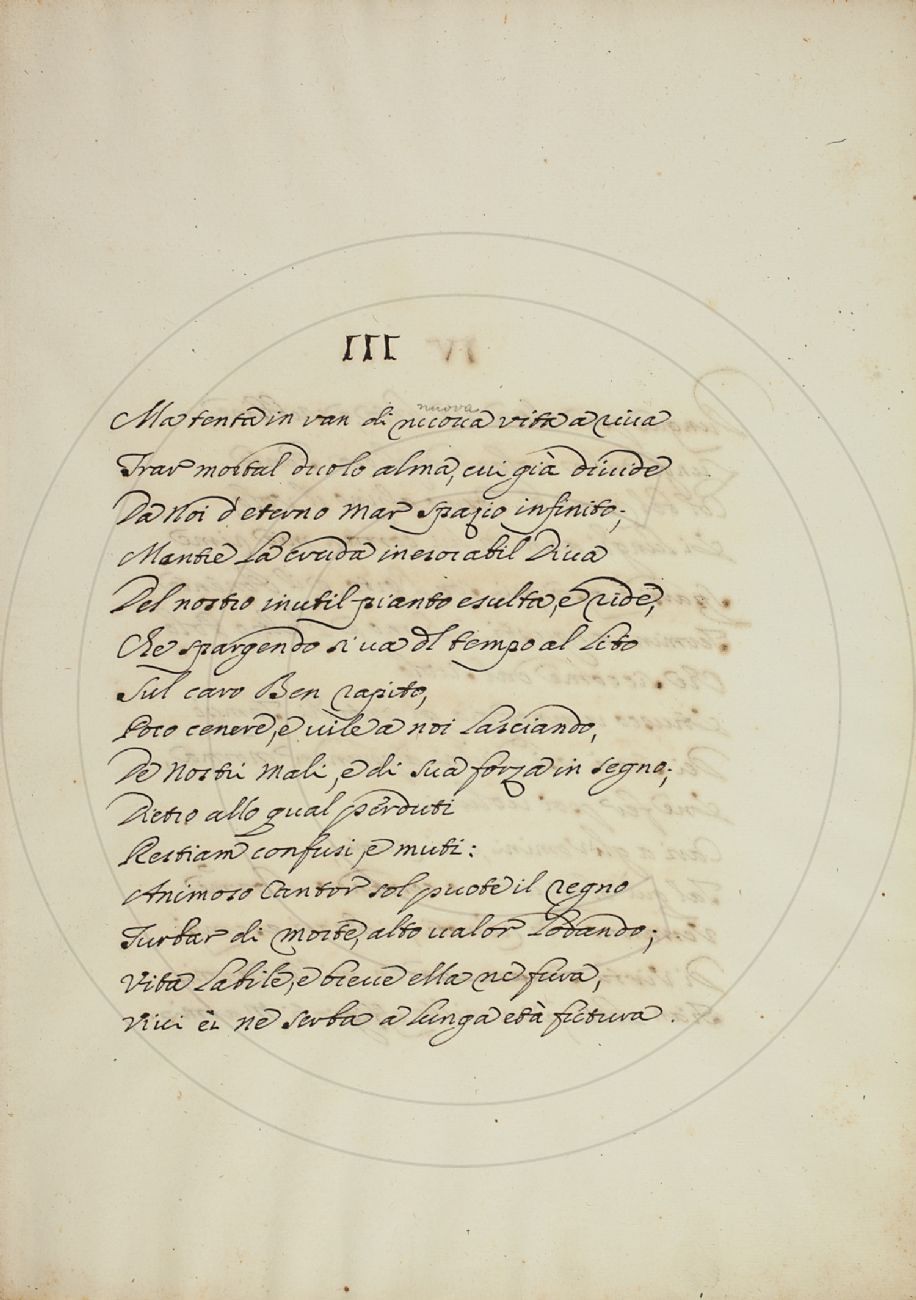 III
nuova
Ma tenta in van di nuova vita a riva
Trar mortal duolo alma, cui già divide
Da Noi d'eterno Mar spazio infinito;
Mentre La cruda inesorabil Diva
Del nostro inutil pianto esulta, e ride,
Che spargendo si va dl tempo al Lito
Sul caro Ben rapito,
Poco cenere, e vile a noi Lasciando,
De Nostri Mali, e di sua forza in segno;
Dietro allo qual perduti
Restiam confusi, e muti:
Animoso Cantor sol puote il regno
Turbar di morte, alto valor Lodando;
Vita Labile, e breve ella ne fura,
Vivi ei ne serba a lunga età futura.